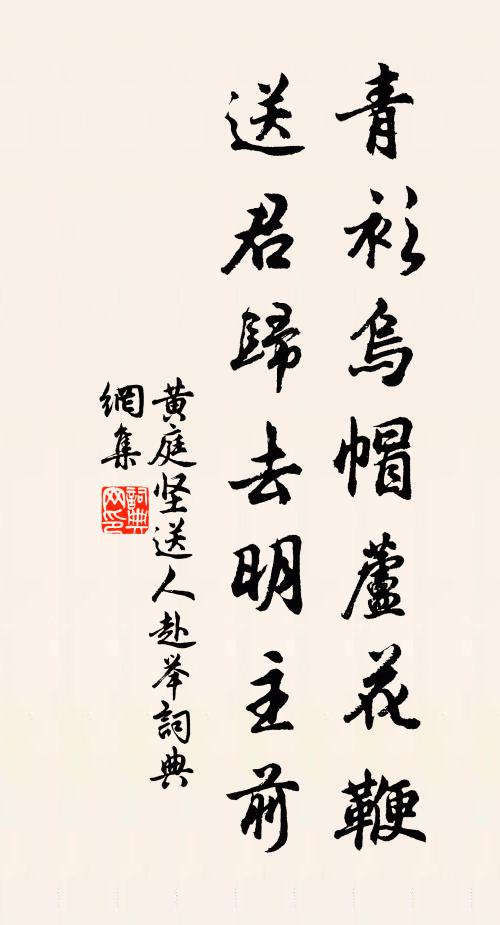 青衫烏帽蘆花鞭
送君歸去明主前
黄庭坚送人赴举詞典
網集
詞典
网印